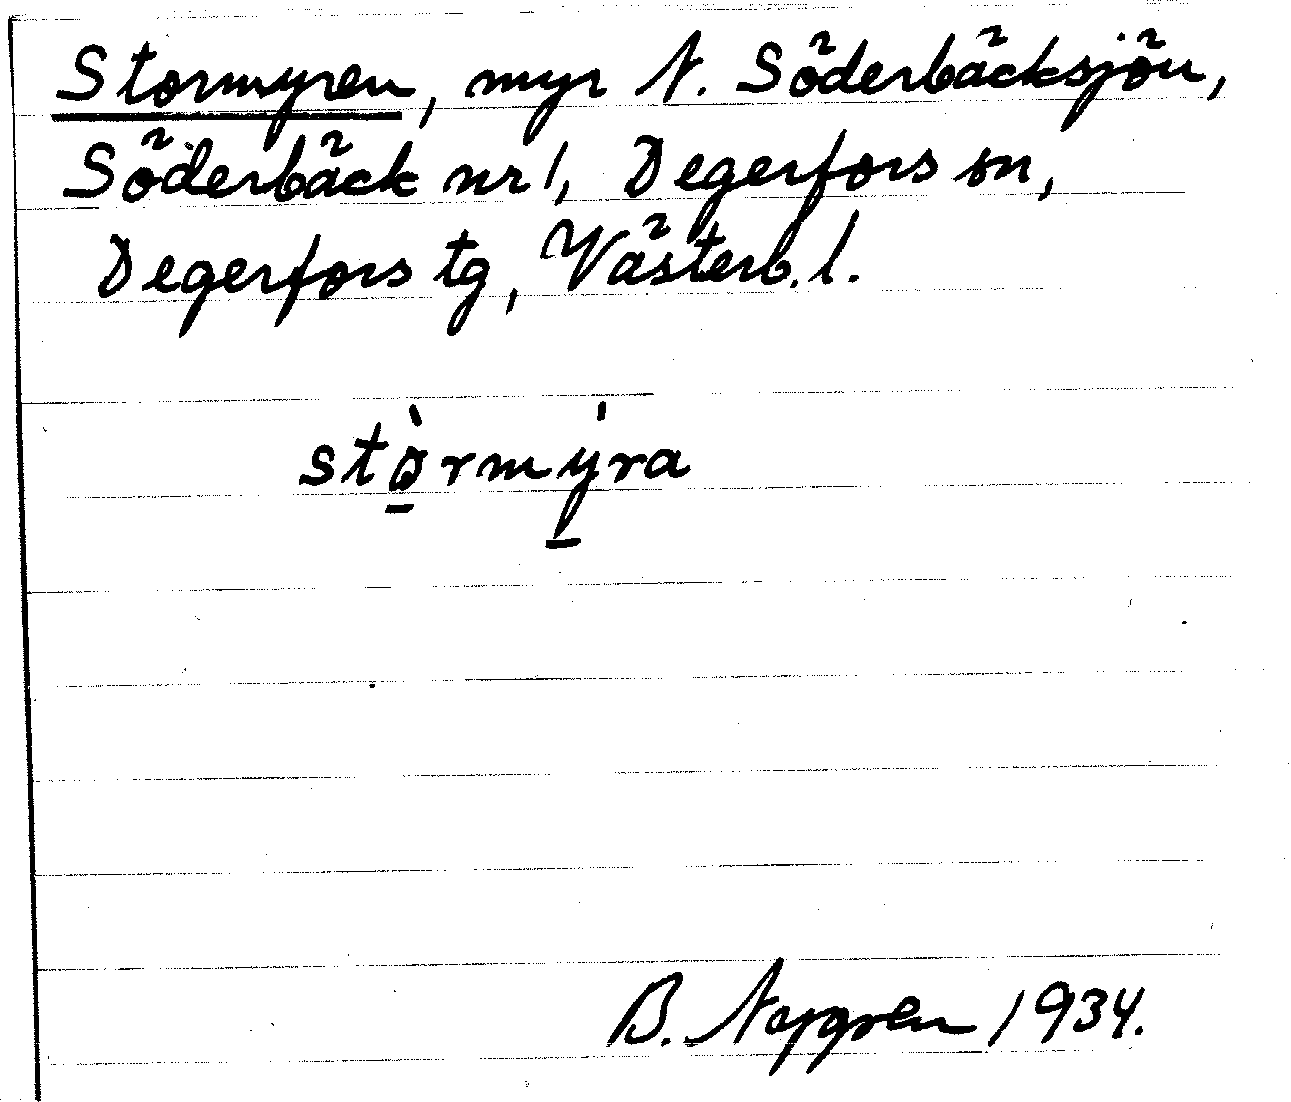 Stormyren, myr N. Söderbäcksjön,
Söderbäck nr 1, Degerfors sn,
Degerfors tg, Västerb. l.
stò̱rmý̱ra
B. 1934.